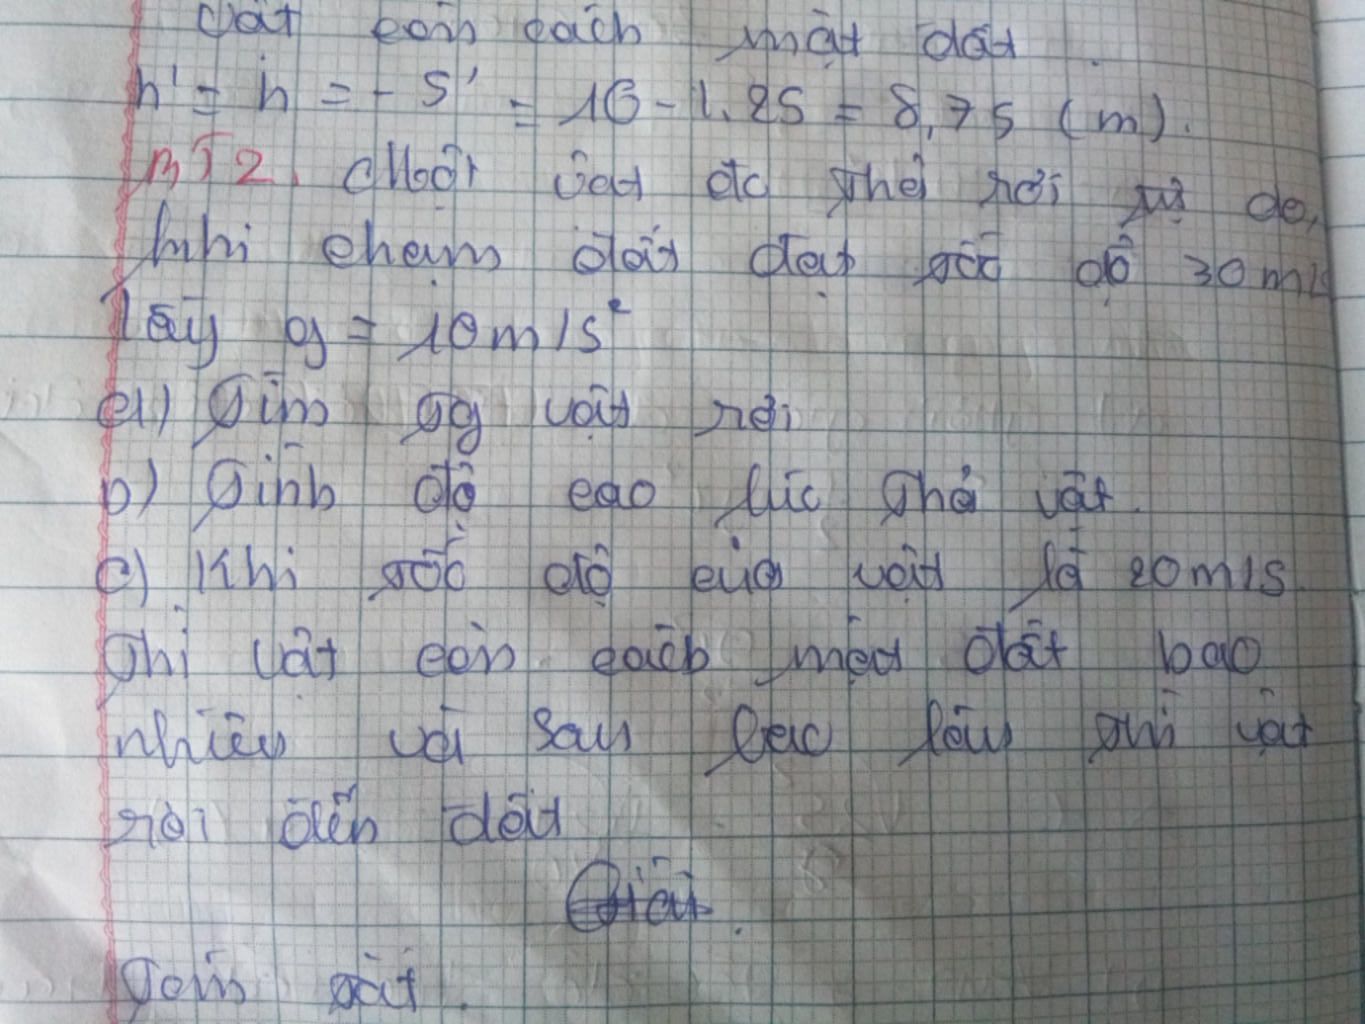 Vật còn cách mặt đất.
h' = h = - s' = 10 - 1,25 = 8,75 (m).
BT2. Một vật đc thả rơi tự do,
khi chạm đất đạt tốc độ 30m/s
lấy g = 10m/s²
a) Tìm tg vật rơi
b) Tính độ cao lúc thả vật.
c) Khi tốc độ của vật là 20m/s
thì vật còn cách mặt đất bao
nhiêu và sau bao lâu thì vật
rơi đến đất
Giải.
Tóm tắt.